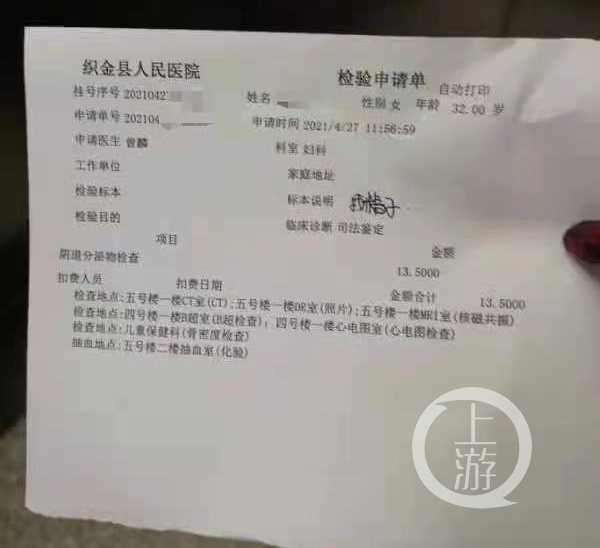 织金县人民医院 检验申请单 自动打印
挂号序号 2021042 姓名 性别 女 年龄 32.00 岁
申请单号 202104 申请时间 2021/4/27 11:56:59
申请医生 曾麟 科室 妇科
工作单位 家庭地址
检验标本 标本说明 找精子
检验目的 临床诊断 司法鉴定
项目 金额
阴道分泌物检查 13.5000
扣费人员 扣费日期 金额合计 13.5000
检查地点:五号楼一楼CT室(CT);五号楼一楼DR室(照片);五号楼一楼MRI室(核磁共振)
检查地点:四号楼一楼B超室(B超检查);四号楼一楼心电图室(心电图检查)
检查地点:儿童保健科(骨密度检查)
抽血地点:五号楼二楼抽血室(化验)
上游